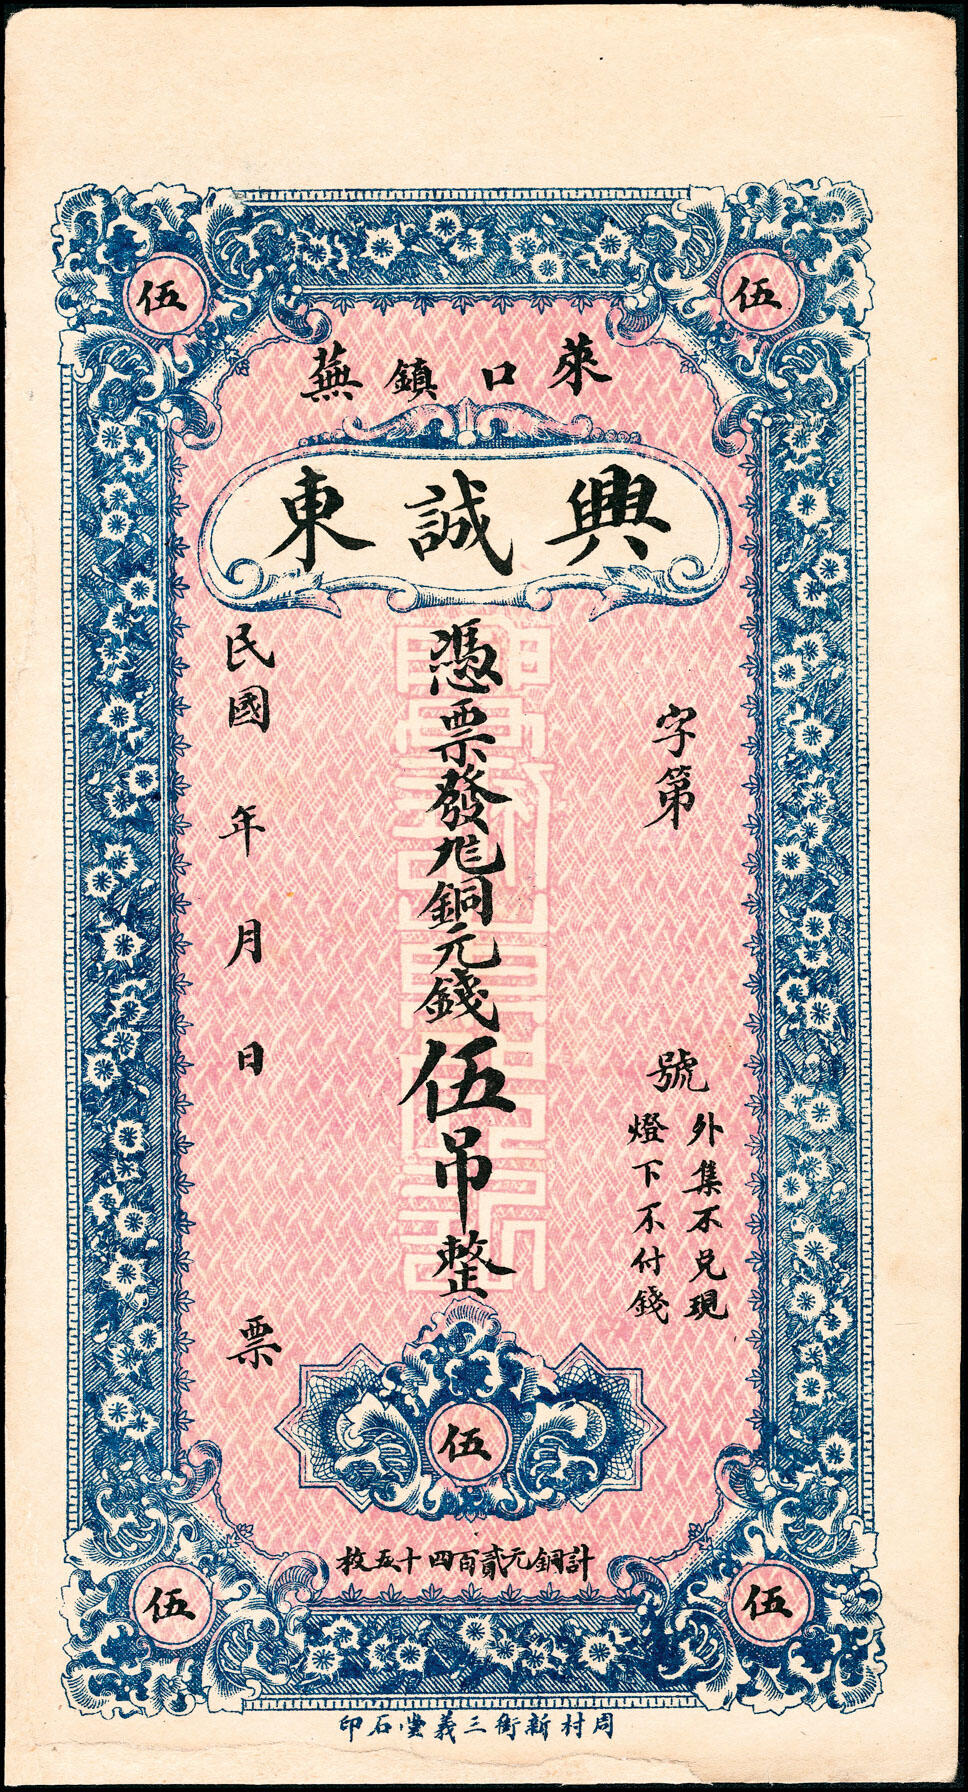 伍
伍
萊口鎮蕪
興誠東
字第 號
外集不兌現
燈下不付錢
憑票發兌銅元錢伍吊整
民國 年 月 日 票
伍
計銅元貳百四十五枚
伍
伍
周村新街三義堂石印